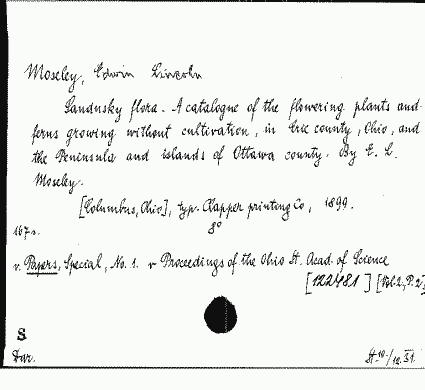 Moseley, Edwin Lincoln
Sandusky flora. A catalogue of the flowering plants and
ferns growing without cultivation, in Erie county, Ohio, and
the Peninsula and islands of Ottawa county. By E. L.
Moseley.
[Columbus, Ohio], typ. Clapper printing Co, 1899.
167 s. 8°
v. Papers, Special, No. 1. v Proceedings of the Ohio St. Acad. of Science
[122481] [Vol. 2, P. 2]
S
Dar. 31.